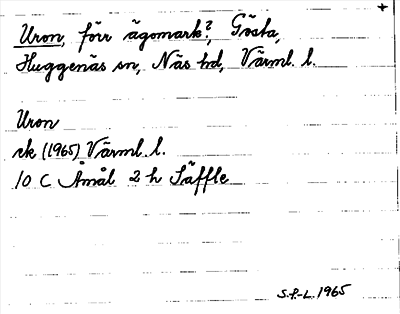 Uron, förr ägomark?, Gösta,
Huggenäs sn, Näs hd, Värml. l.
Uron
ek (1965) Värml. l.
10 C Åmål 2 h Säffle
S.F.-L. 1965